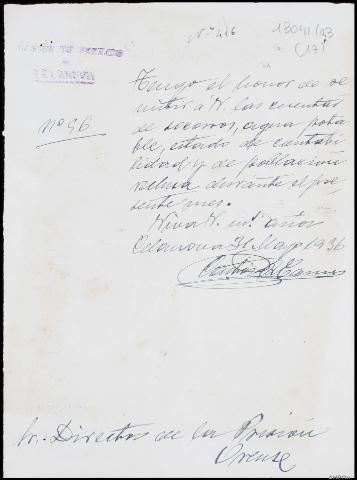 Nº 416
13041/03
(17)
CELANOVA
Nº 96
Tengo el honor de re
mitir a V. las cuentas
de socorros, agua pota
ble, estado de contabi
lidad y de poblacion
reclusa durante el pre
sente mes.
Viva V. m.s años
Celanova 31 Mayo 1936
Sr. Director de la Prisión
Orense